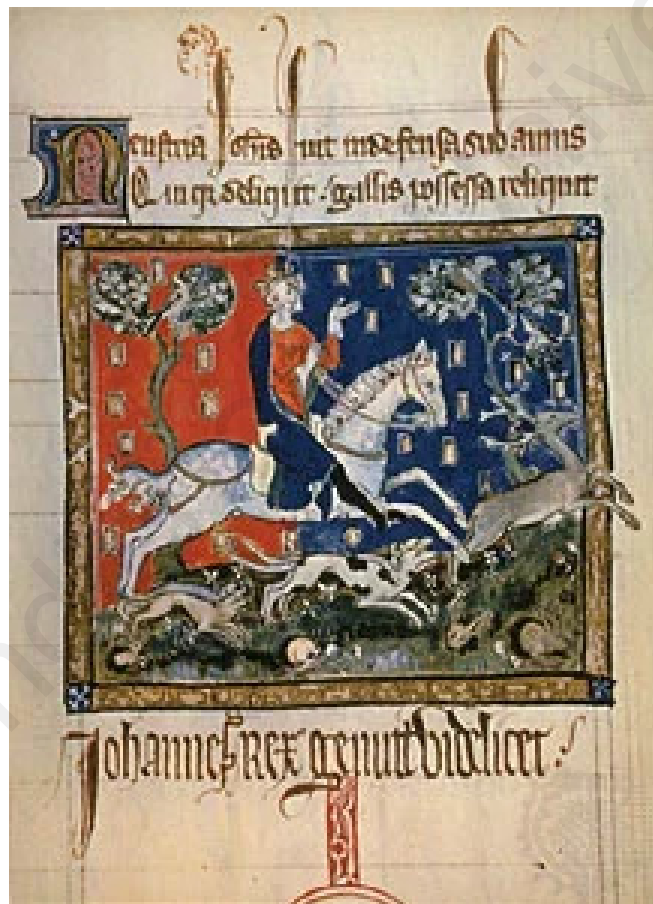 Neustria Johs fuit indefensa sub annis
Quinqz deliquit. gallis possessa reliquit
Johannes Rex genuit videlicet.